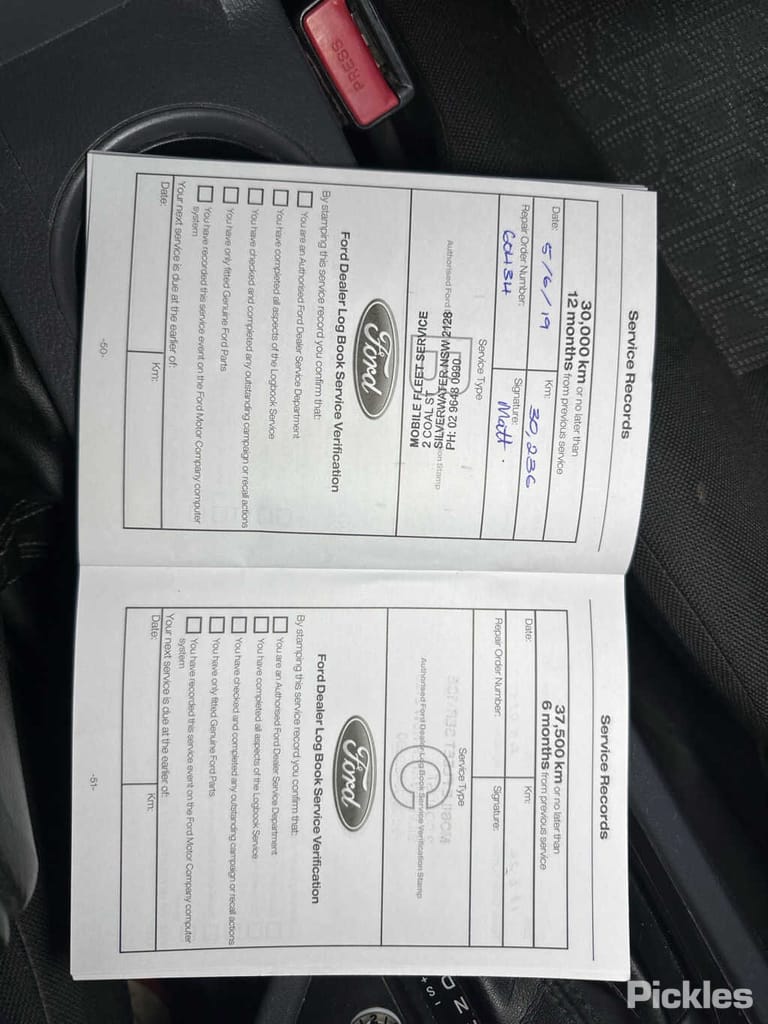 Service Records
30,000 km or no later than
12 months from previous service
Date: 5/6/19 Km: 30,236
Repair Order Number: 60434 Signature: Matt.
Service Type
B
Authorised Ford
on Stamp
MOBILE FLEET SERVICE
2 COAL ST
SILVERWATER NSW 2128
PH: 02 9648 0990
Ford
Ford Dealer Log Book Service Verification
By stamping this service record you confirm that:
You are an Authorised Ford Dealer Service Department
You have completed all aspects of the Logbook Service
You have checked and completed any outstanding campaign or recall actions
You have only fitted Genuine Ford Parts
You have recorded this service event on the Ford Motor Company computer
system
Your next service is due at the earlier of:
Date: Km:
-50-
Service Records
37,500 km or no later than
6 months from previous service
Date: Km:
Repair Order Number: Signature:
Service Type
C
Authorised Ford Dealer Log Book Service Verification Stamp
Ford
Ford Dealer Log Book Service Verification
By stamping this service record you confirm that:
You are an Authorised Ford Dealer Service Department
You have completed all aspects of the Logbook Service
You have checked and completed any outstanding campaign or recall actions
You have only fitted Genuine Ford Parts
You have recorded this service event on the Ford Motor Company computer
system
Your next service is due at the earlier of:
Date: Km:
-51-
PRESS
N
D
S
+
Pickles